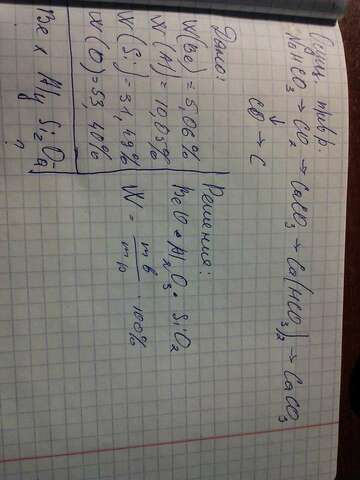 Осущ. превр.
NaHCO3 → CO2 → CaCO3 → Ca(HCO3)2 → CaCO3
↓
CO → C
Дано:
W(Be) = 5,06%
W(Al) = 10,05%
W(Si) = 31,49%
W(O) = 53,40%
Bex Aly SizOa
?
Решения:
BeO • Al2O3 • SiO2
W = mв / mр · 100%